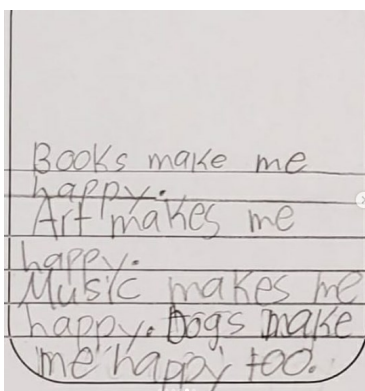 Books make me
happy.
Art makes me
happy.
Music makes me
happy. Dogs make
me happy too.